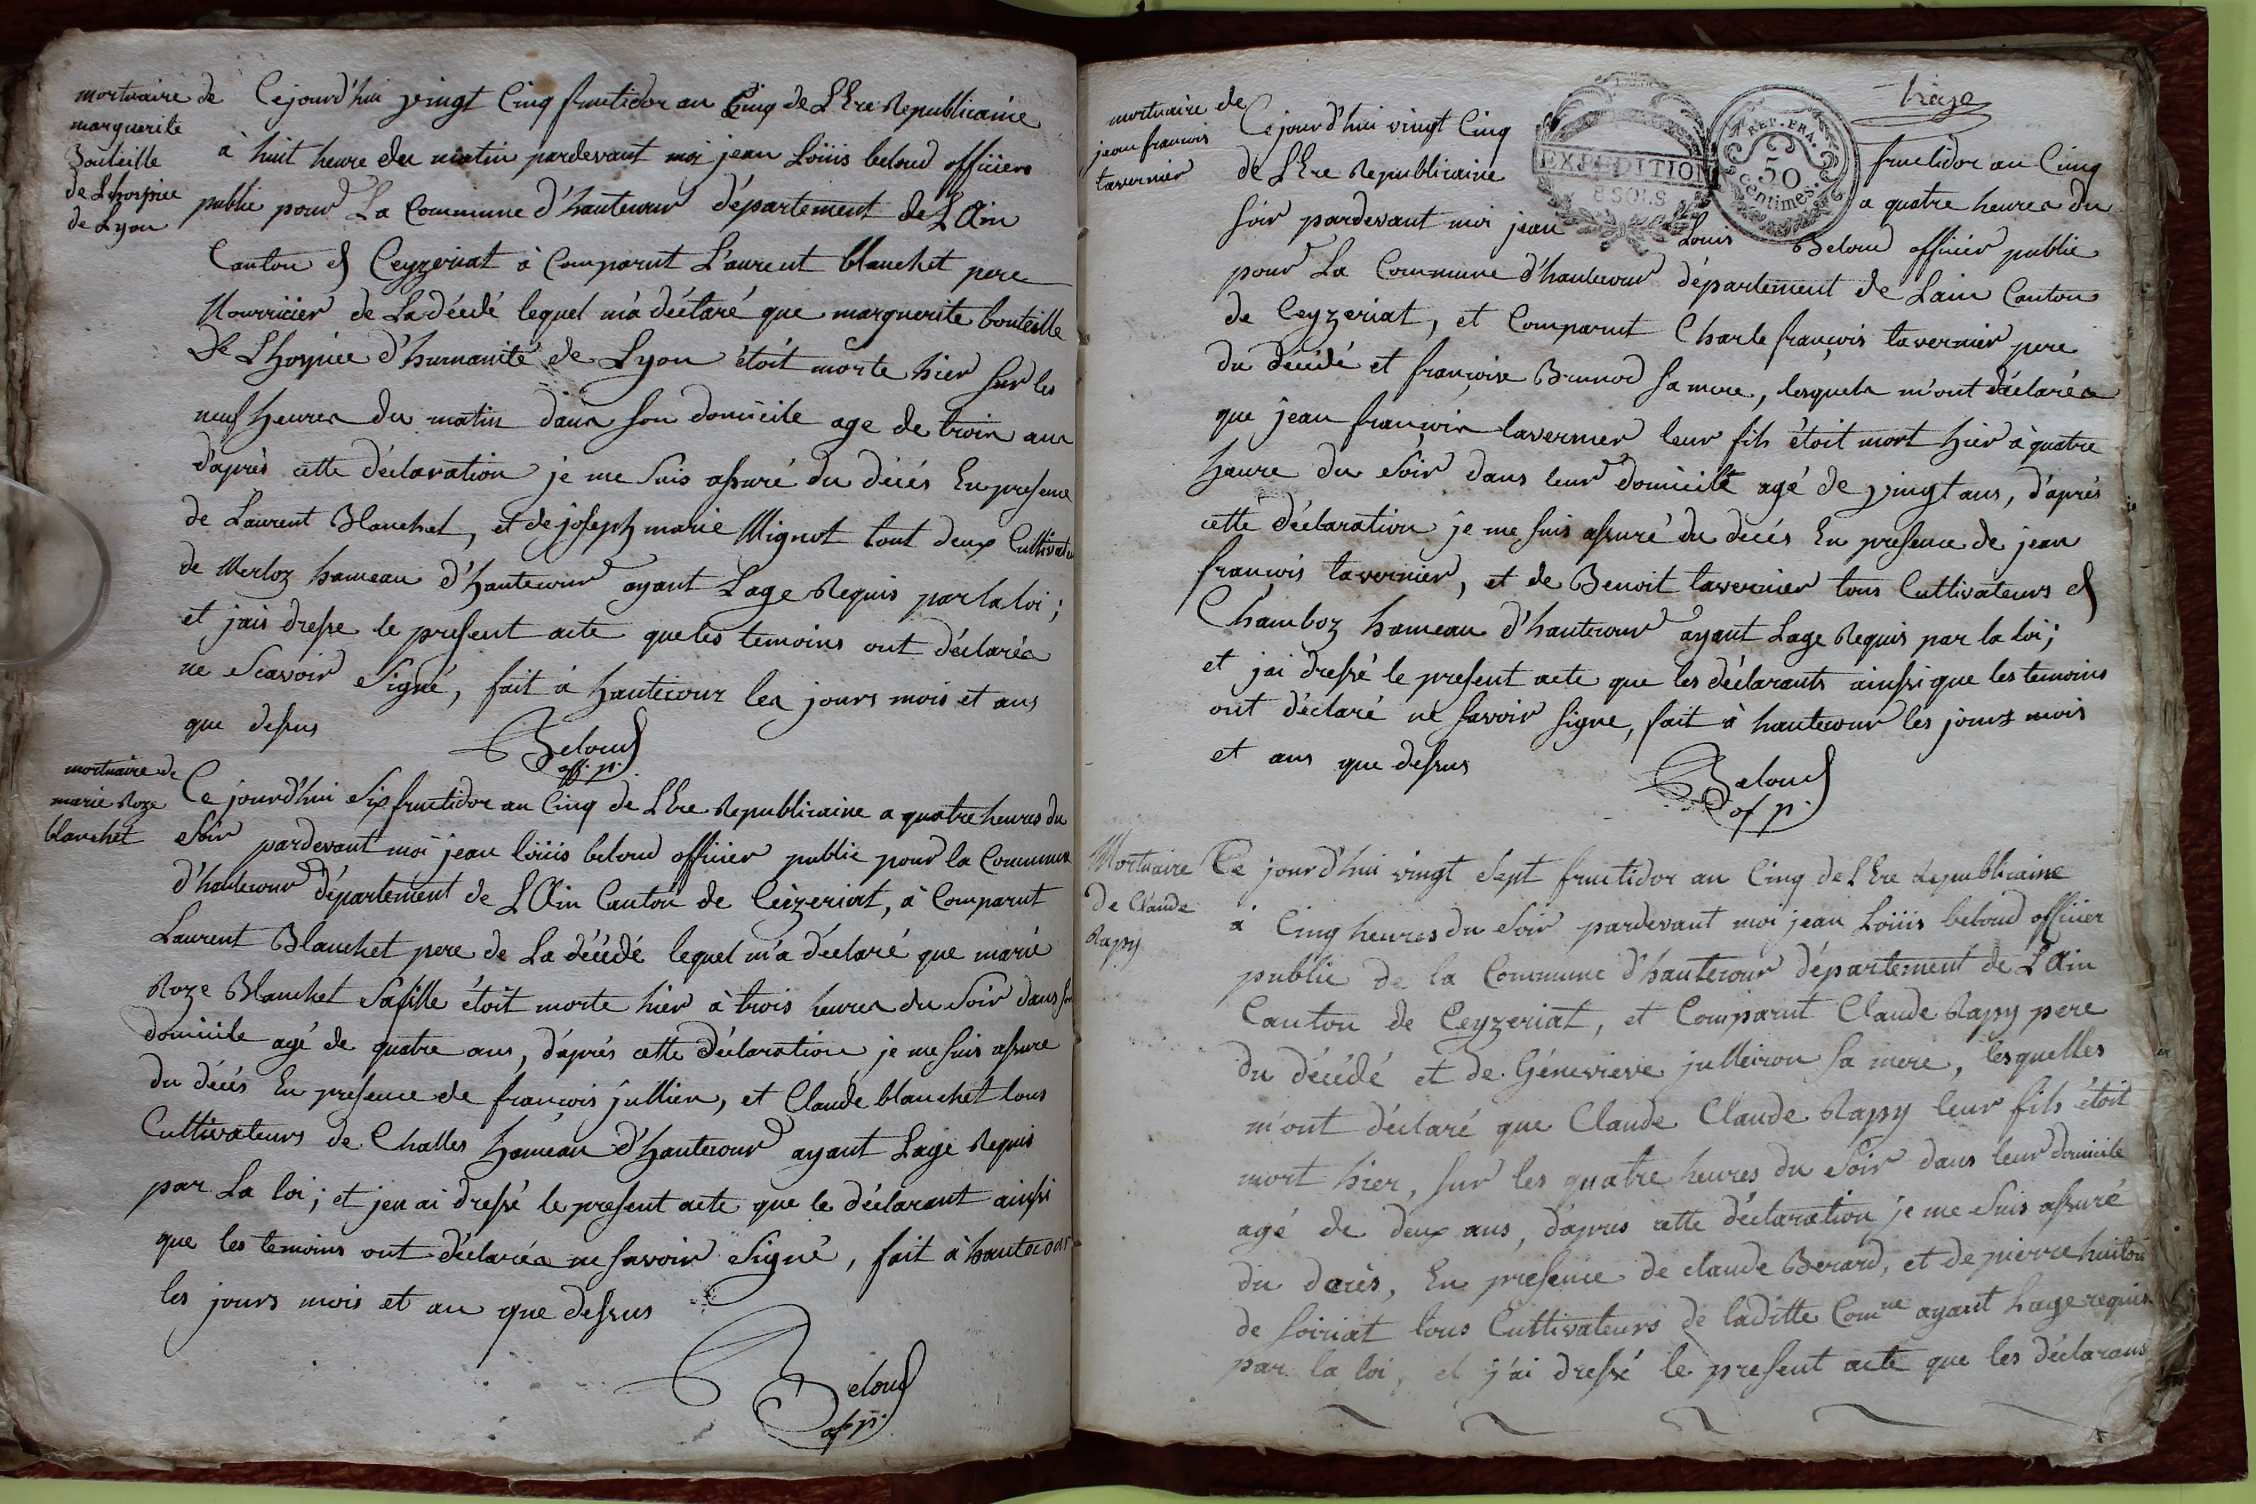 mortuaire de
marguerite
Bouteille
de Lhospice
de Lyon
Cejourd'hui vingt Cinq fructidor an Cinq de L'Ere Republicaine
à huit heure du matin pardevant moi jean Loüis beloud officiers
public pour La Commune d'hautecour département de L'Ain
Canton de Ceyzeriat à Comparut Laurent blanchet pere
Nourricier de La décédé lequel m'a déclaré que marguerite bouteille
De Lhospice d'humanité de Lyon étoit morte hier sur les
neuf heures du matin dans son domicile age de trois ans
d'après cette déclaration je me suis assuré du décés En presence
de Laurent Blanchet, et de joseph marie Mignot tout deux Cultivate
de Merloz hameau d'hautecour ayant Lage Requis par la loi;
et jais dresse le present acte que les temoins ont déclarés
ne Scavoir Signé, fait à hautecour les jours mois et ans
que dessus
Beloud
off. p.
mortuaire de
marie Roze
blanchet
Ce jourd'hui Six fructidor an Cinq de L'Ere Republicaine a quatre heures du
Soir pardevant moi jean loüis beloud officier public pour la Commune
d'hautecour département de L'Ain Canton de Ceizeriat, à Comparut
Laurent Blanchet pere de La décédé lequel m'a déclaré que marie
Roze Blanchet Safille étoit morte hier à trois heures du Soir dans son
domicile agé de quatre ans, d'aprés cette déclaration je me suis assure
du décés En presence de françois jullien, et Claude blanchet tous
Cultivateurs de Challes hameau d'hautecour ayant Lage Requis
par La loi; et jen ai dressé le present acte que le déclarant ainssi
que les temoins ont déclarés ne savoir Signé, fait à hautecour
les jours mois et an que dessus
Beloud
of. p.
mortuaire de
jean francois
tavernier
EXPEDITION
8 SOLS
REP. FRA.
50
Centimes.
Ce jourd'hui vingt Cinq fructidor an Cinq
de L'Ere Republicaine a quatre heures du
soir pardevant moi jean Louis Beloud officier public
pour La Commune d'hautecour département de Lain Canton
de Ceyzeriat, et Comparut Charle françois tavernier pere
du décédé et françoise Brunod sa mere, lesquels m'ont déclarés
que jean françois tavernier leur fils étoit mort hier à quatre
heure du Soir dans leur domicile agé de vingt ans, d'aprés
cette déclaration je me suis assuré du decés En presence de jean
francois tavernier, et de Benoit tavernier tous Cultivateurs de
Chamboz hameau d'hautecour ayant Lage Requis par la loi;
et jai dressé le present acte que les déclarants ainssi que les temoins
ont déclaré ne savoir signe, fait à hautecour les jours mois
et ans que dessus
Beloud
of p.
Mortuaire
De Claude
Rapy
Ce jourd'hui vingt Sept fructidor an Cinq de L'Ere Republicaine
à Cinq heures du Soir pardevant moi jean Loüis beloud officier
public de la Commune d'hautecour département de L'Ain
Canton de Ceyzeriat, et Comparut Claude Rapy pere
du décédé et de Génevieve julleiron sa mere, lesquelles
m'ont déclaré que Claude Claude Rapy leur fils étoit
mort hier, sur les quatre heures du Soir dans leur domicile
agé de deux ans, d'aprés cette déclaration je me suis assuré
du decés, En presence de claude Berard, et de pierre
de soiriat tous Cultivateurs de laditte Comne ayant Lage requis
par la loi, et j'ai dressé le present acte que les déclarans